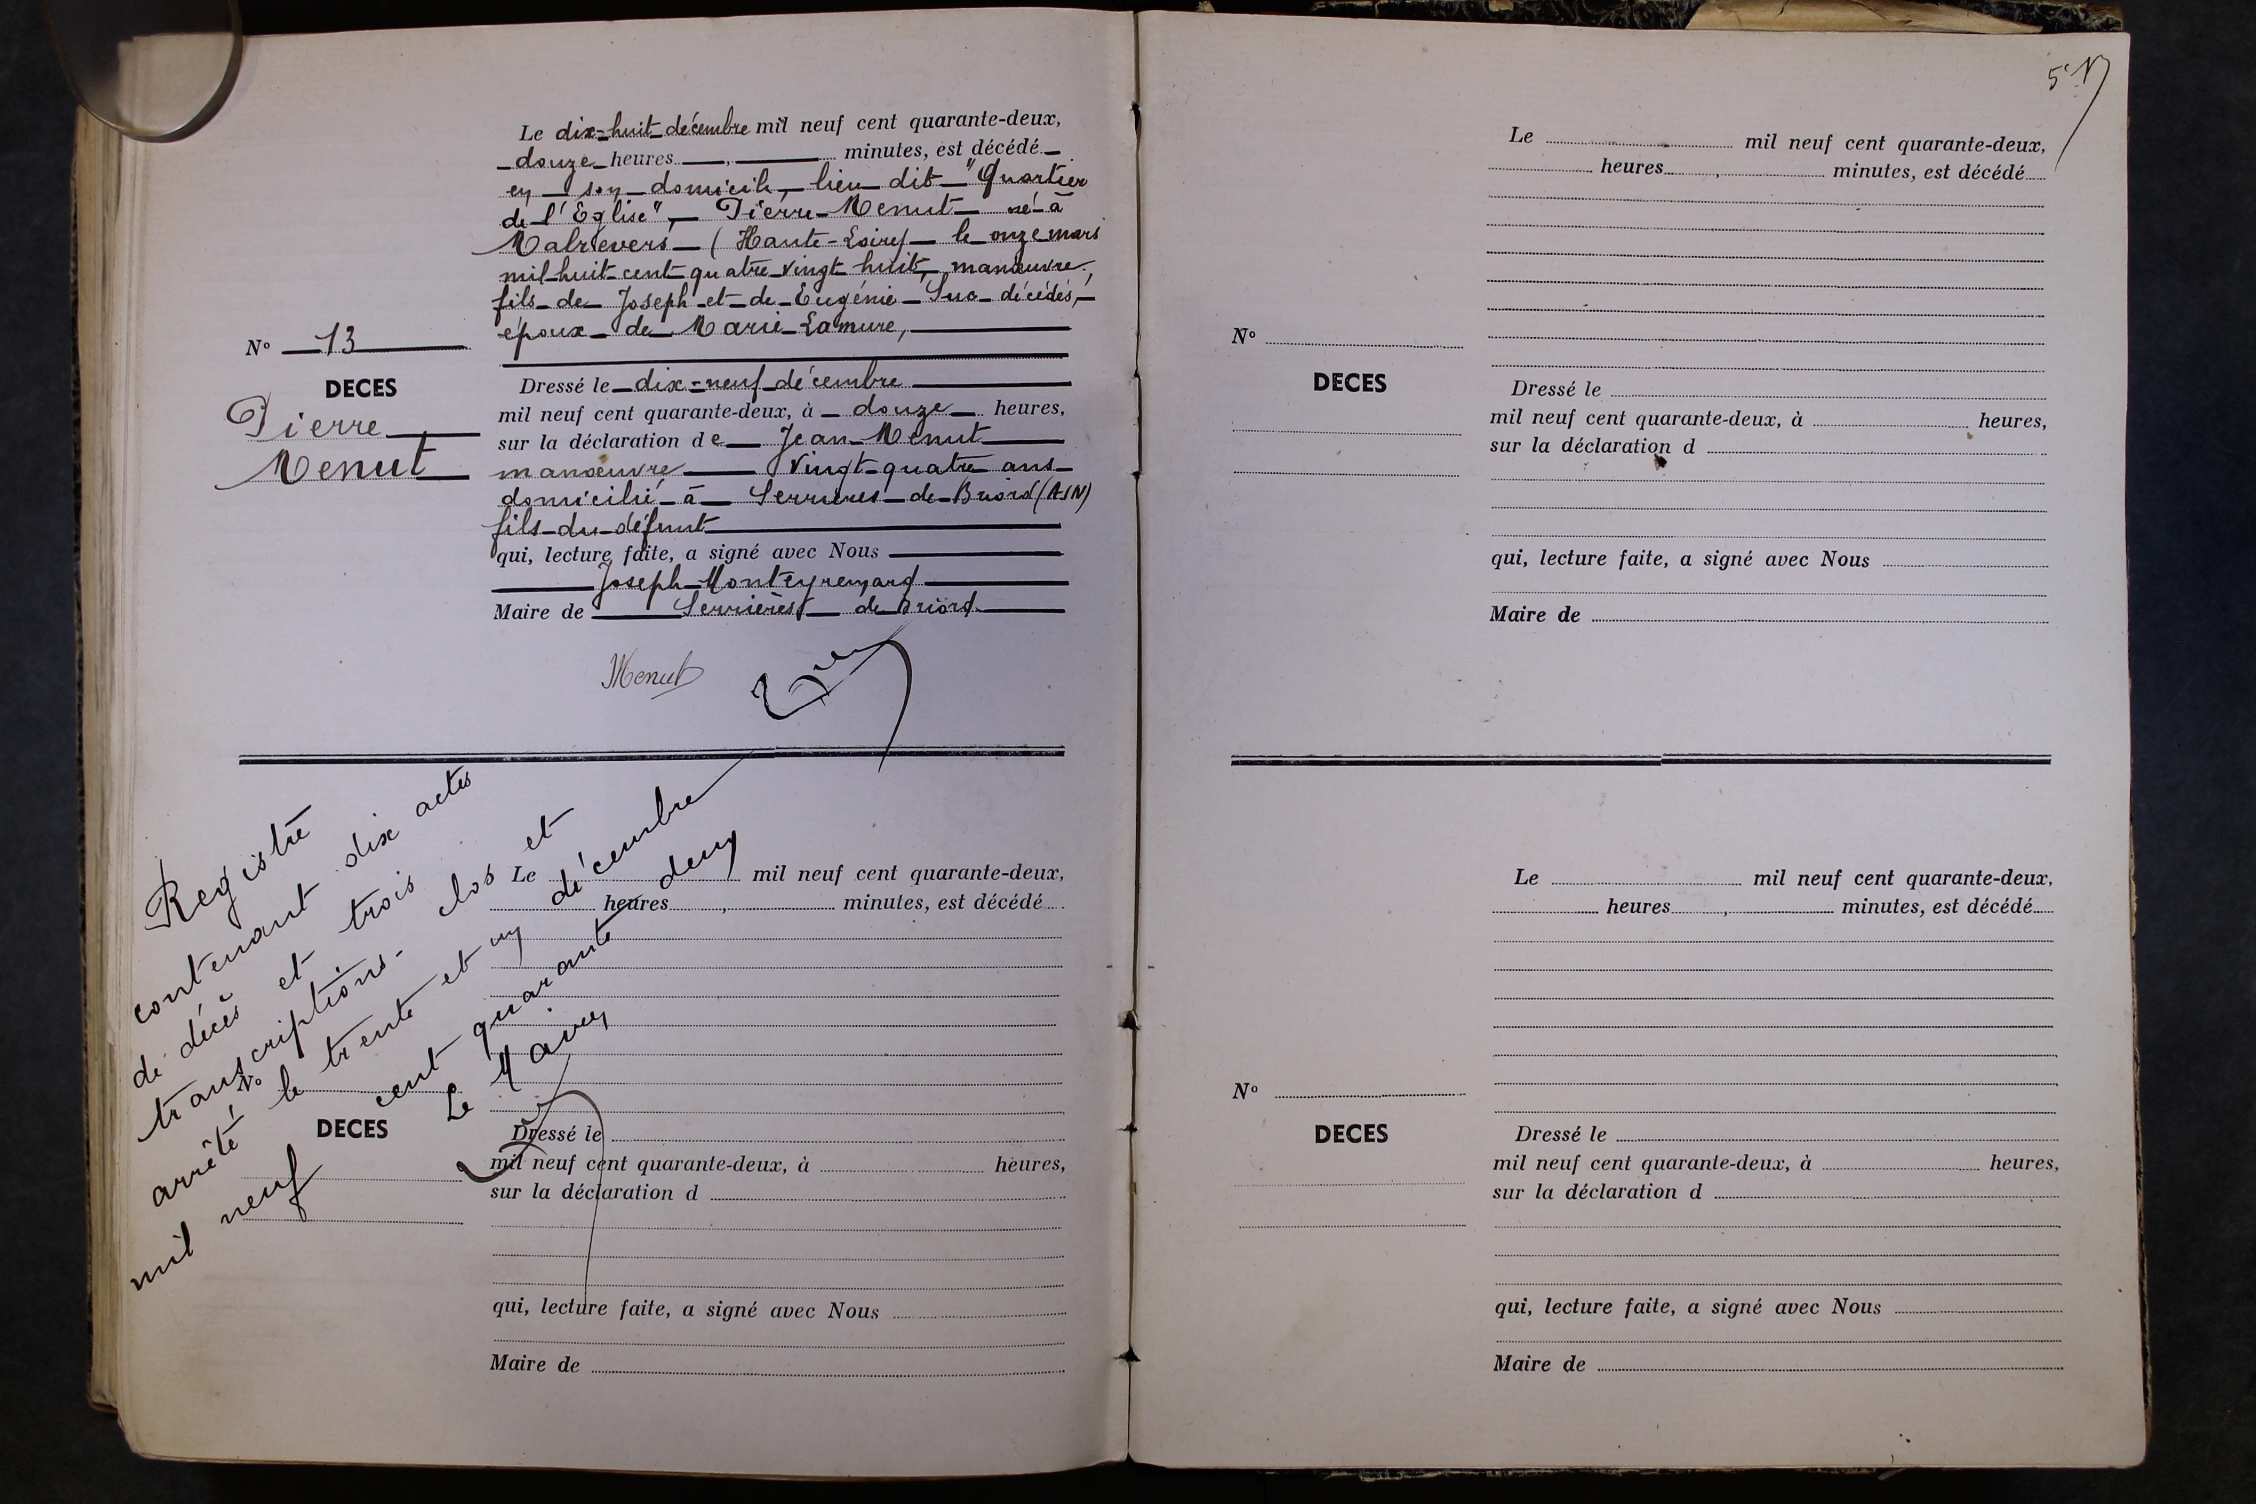 Le dix-huit décembre mil neuf cent quarante-deux,
douze heures , minutes, est décédé
en son domicile, lieu dit "Quartier
de l'Eglise", Pierre Menut né à
Malrevers (Haute-Loire) le onze mars
mil huit cent quatre vingt huit, manœuvre,
fils de Joseph et de Eugénie Suc décédés,
époux de Marie Lamure,
N° 13
DECES
Pierre
Menut
Dressé le dix-neuf décembre
mil neuf cent quarante-deux, à douze heures,
sur la déclaration de Jean Menut
manœuvre vingt-quatre ans
domicilié à Serrières de Briord (AIN)
fils du défunt
qui, lecture faite, a signé avec Nous
Joseph Monteyremard
Maire de Serrières de Briord
Menut
Registre
contenant dix actes
de décès et trois
transcriptions. clos et
arrêté le trente et un décembre
mil neuf cent quarante deux
Le Maire
Le mil neuf cent quarante-deux,
heures , minutes, est décédé
N°
DECES
Dressé le
mil neuf cent quarante-deux, à heures,
sur la déclaration d
qui, lecture faite, a signé avec Nous
Maire de
Le mil neuf cent quarante-deux,
heures , minutes, est décédé
N°
DECES
Dressé le
mil neuf cent quarante-deux, à heures,
sur la déclaration d
qui, lecture faite, a signé avec Nous
Maire de
Le mil neuf cent quarante-deux,
heures , minutes, est décédé
N°
DECES
Dressé le
mil neuf cent quarante-deux, à heures,
sur la déclaration d
qui, lecture faite, a signé avec Nous
Maire de